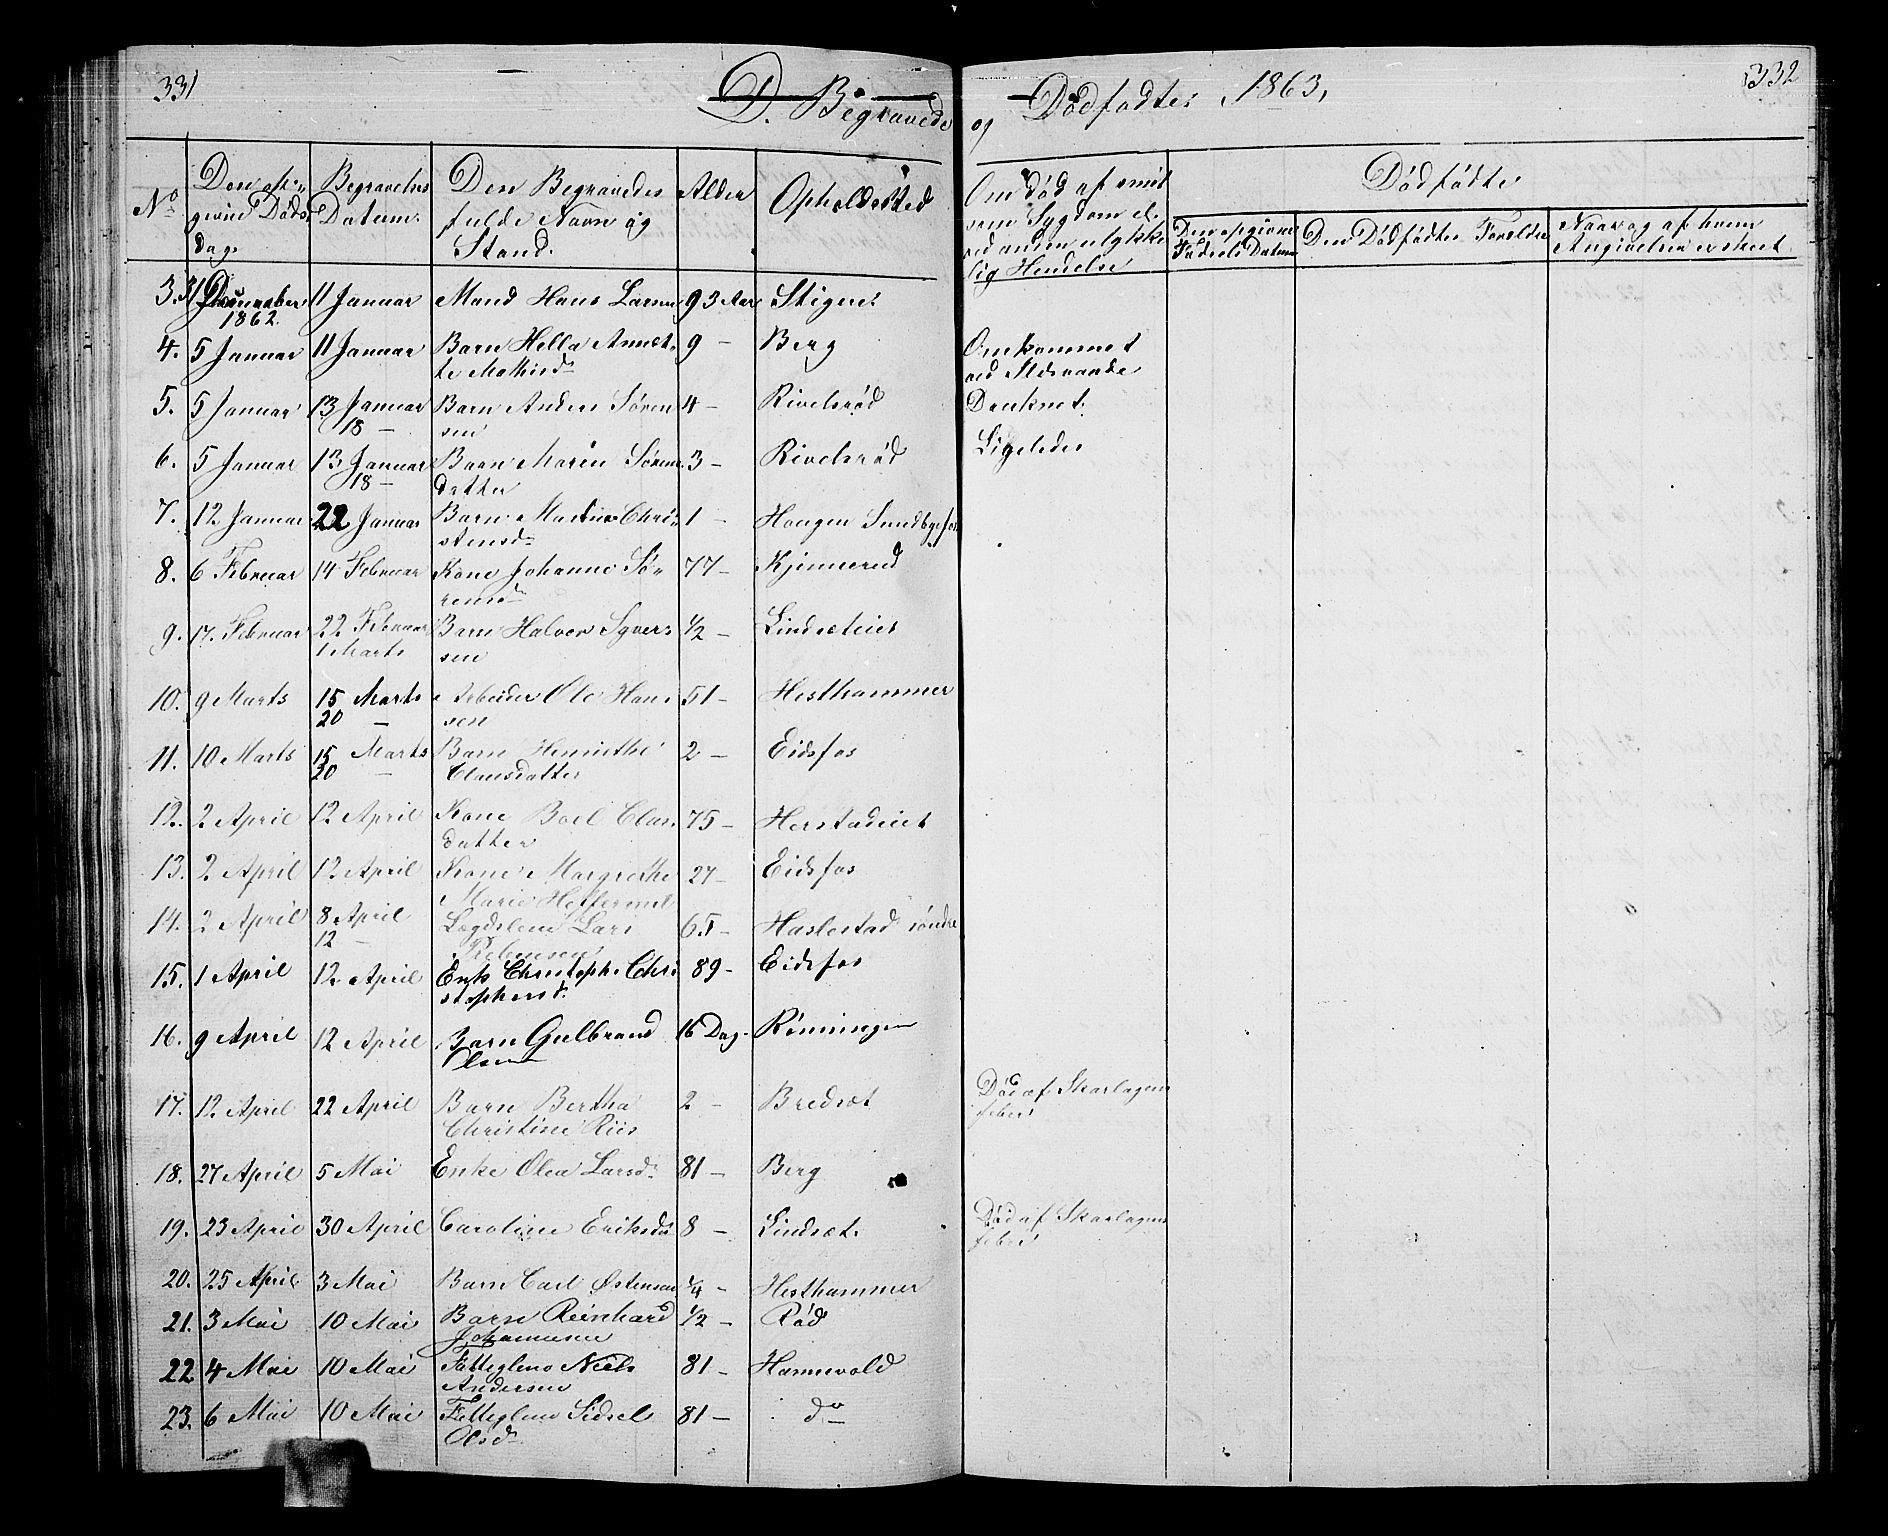 331
D. Begravede
og
Dødfødte, 1863,
332
No
Den op-
givne Døds
dag.
Begravelses
Datum.
Den Begravedes
fulde Navn og
Stand.
Alder
Opholdssted
Om død af smit
som Sygdom el.
ved anden ulykke
lig Hendelse
Dødfødte
Den opgivne
Fødsels Datum
Den Dødfødtes Forældre
Naar og af hvem
Angivelsen er skeet.
3. 31 December 11 Januar Mand Hans Larsen 93 Aar Stigene
1862.
4. 5 Januar 11 Januar Barn Hella Annet- 9 - Berg Omkommet
te Mathisd. ved Ildsvaade
5. 5 Januar 13 Januar Barn Anders Søren 4 - Rivelsrød Druknet.
18 - sen
6. 5 Januar 13 Januar Barn Maren Sørens 3 - Rivelsrød Ligeledes
18 - datter
7. 12 Januar 22 Januar Barn Martine Chri- 1 - Haugen Sundbyfos
stensd.
8. 6 Februar 14 Februar Kone Johanne Sø- 77 - Kjennerød
rensd.
9. 17. Februar 22 Februar Barn Halvor Syvers 1/2 - Lindseteiet
1 Marts sen
10. 9 Marts 15 Marts Arbeider Ole Han 51 - Hesthammer
20 - sen
11. 10 Marts 15 Marts Barn Henriethe 2 - Eidsfos
20 - Clausdatter
12. 2 April 12 April Kone Boel Clas 75 - Herstadeiet
datter
13. 2 April 12 April Kone Margrethe 27 - Eidsfos
Marie
14. 2 April 8 April Lægdslem Lars 65 - Haslestad søndre
12 -
15. 1 April 12 April Enke Christophe Chri 89 - Eidsfos
stophersd.
16. 9 April 12 April Barn Gulbrand 16 Dag. Rønningen
Olsen
17. 12 April 22 April Barn Bertha 2 - Bredset Død af Skarlagens
Christine Riis feber
18. 27 April 5 Mai Enke Olea Larsd. 81 - Berg
19. 23 April 30 April Caroline Eriksd. 8 - Lindset. Død af Skarlagens
feber
20. 25 April 3 Mai Barn Carl Østensen 1/4 - Hesthammer
21. 3 Mai 10 Mai Barn Reinhard 1/2 - Rød
Johannesen
22 4 Mai 10 Mai Fattiglem Niels 81 - Hannevold
Andersen
23. 6 Mai 10 Mai Fattiglem Sidsel 81 - do
Olsd.